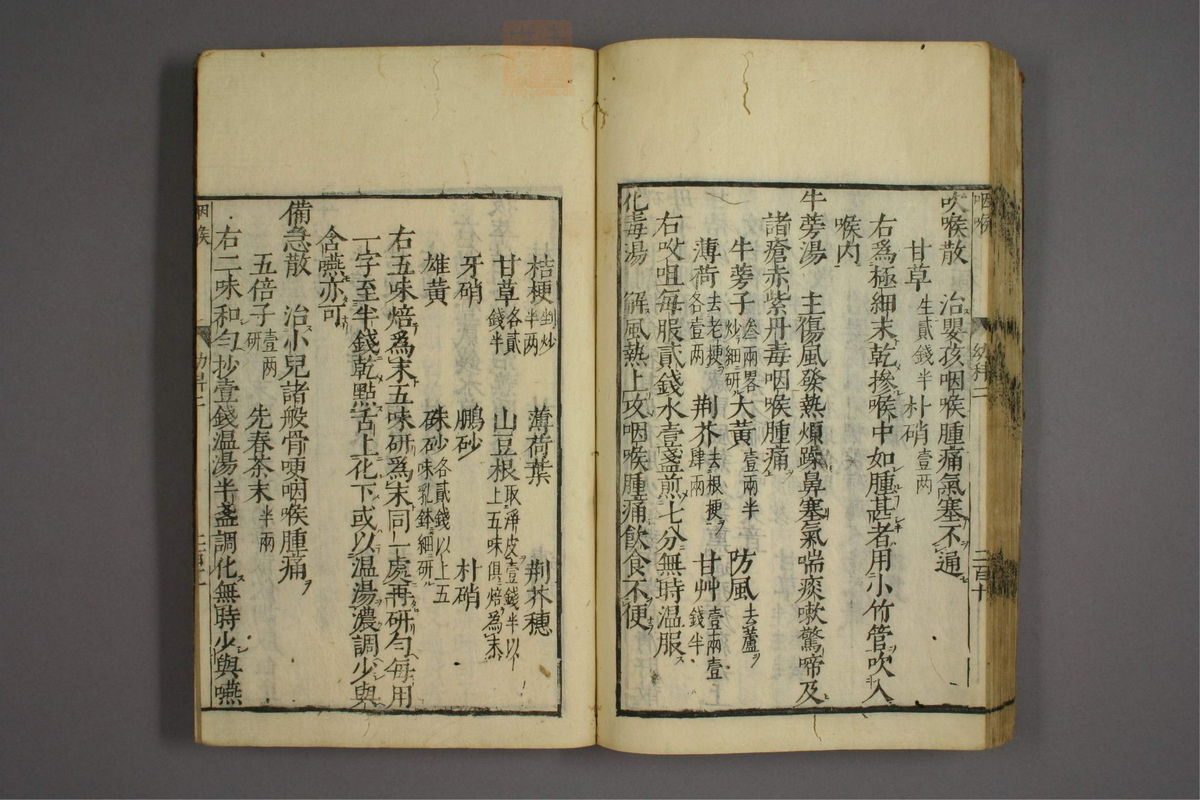 吹喉散　治嬰孩咽喉腫痛氣塞不通
甘草生貳錢半　朴硝壹两
右爲極細末乾摻喉中如腫甚者用小竹管吹入
喉内
牛蒡湯　主傷風發熱煩躁鼻塞氣喘痰嗽驚啼及
諸瘡赤紫丹毒咽喉腫痛
牛蒡子叁兩畧炒細研　大黄壹兩半　防風去蘆
薄荷去老梗各壹两　荆芥去根梗肆兩　甘艸壹兩壹錢半
右㕮咀每服貳錢水壹盞煎七分無時温服
化毒湯　解風熱上攻咽喉腫痛飲食不便
桔梗剉炒半两　薄荷葉　荆芥穗
甘草各貳錢半　山豆根取淨皮壹錢半以上五味俱焙爲末
牙硝　鵬砂　朴硝
雄黄　硃砂各貳錢以上五味乳鉢細研
右五味焙爲末五味研爲末同一處再研勻每用
一字至半錢乾點舌上化下或以温湯濃調少與
含嚥亦可
備急散　治小兒諸般骨哽咽喉腫痛
五倍子壹两研　先春茶末半兩
右二味和勻抄壹錢温湯半盞調化無時少與嚥
咽喉
幼科二
二百十